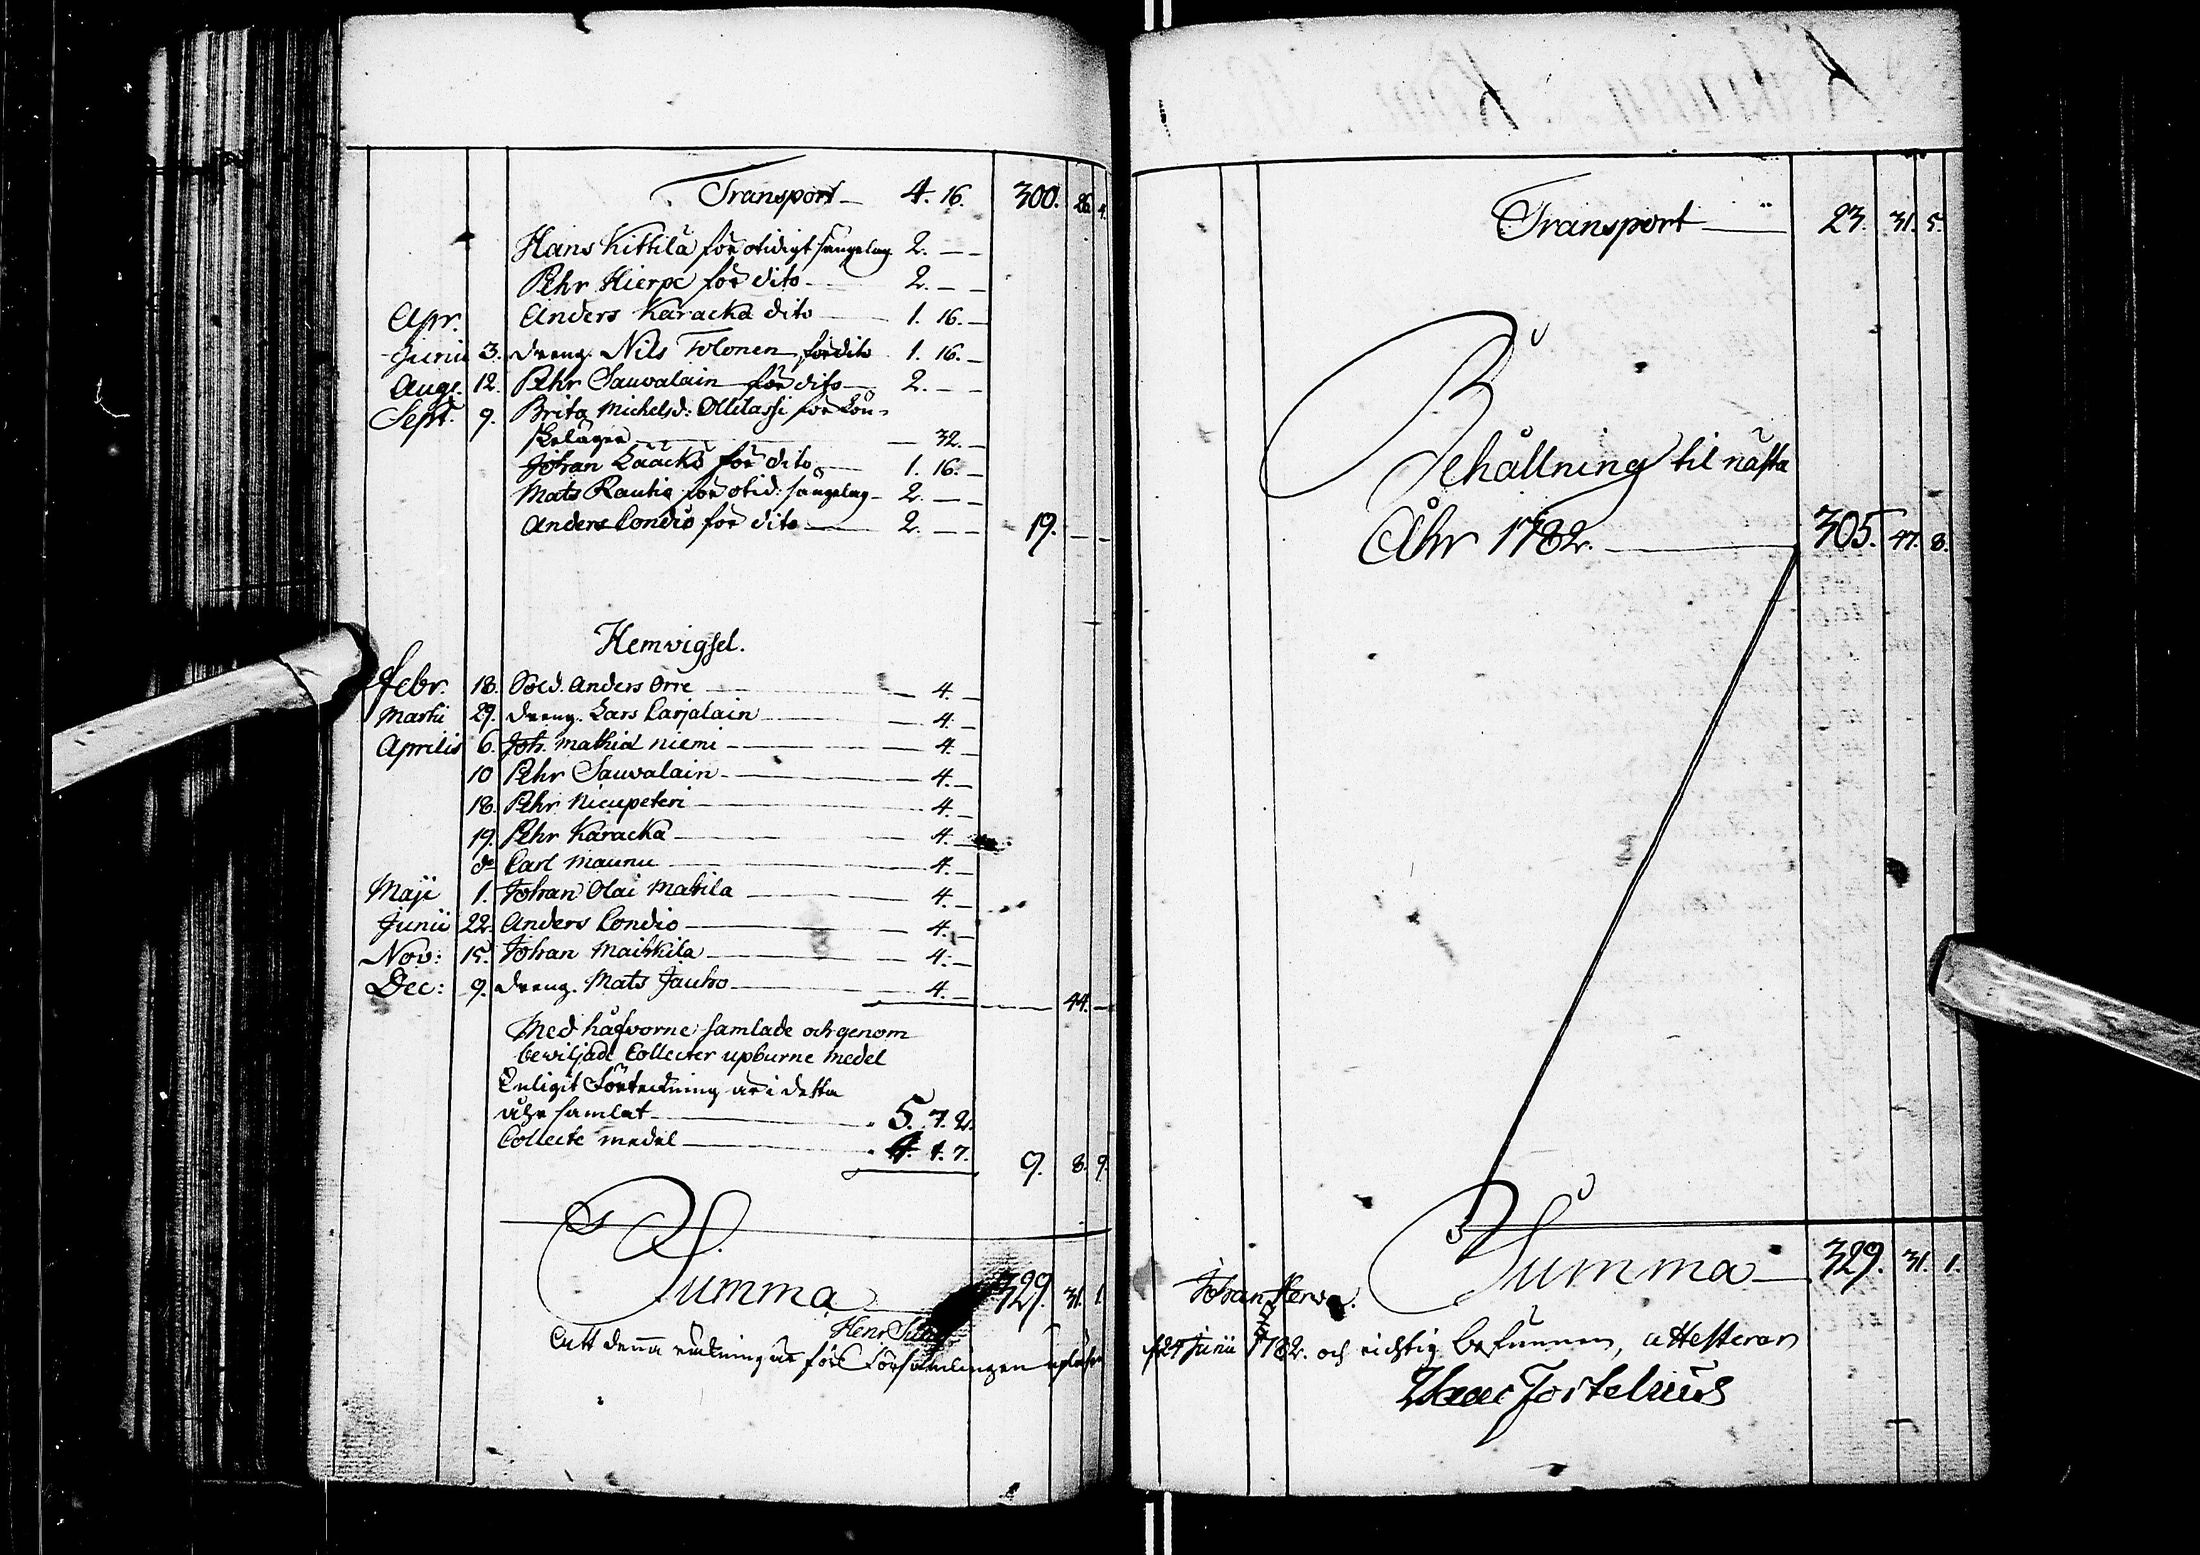 Transport 4. 16. 300. 26. 4.
Hans Kittilä för otidigt sängelag 2. — —
Pehr Hierpe för dito 2. — —
Apr. Anders Karacka dito 1. 16. —
Junii 3. dreng. Nils Tolonen för dito 1. 16. —
Aug. 12. Pehr Sauvalain för dito 2. — —
Sept. 9. Brita Michelsd: Ollilassi för Lön-
skeläger — 32. —
Johan Lääckö för dito 1. 16. —
Mats Rautio för otid: sängelag 2. — —
Anders Londio för dito 2. — — 19. — —
Hemvigsel.
Febr. 18. Sold. Anders Orre — 4. —
Martii 29. dreng. Lars Carjalain — 4. —
Aprilis 6. Joh. Mathid niemi — 4. —
10 Pehr Sauvalain — 4. —
18. Pehr Nicupeteri — 4. —
19. Pehr Karacka — 4. —
do Carl Maunu — 4. —
Maji 1. Johan Olai Matila — 4. —
Junii 22. Anders Londio — 4. —
Nov: 15. Johan Maitkila — 4. —
Dec: 9. dreng. Mats Jauho — 4. — 44. —
Med håfvorne samlade och genom
beviljade Collecter upburne medel
Enligit Förtekning är i detta
åhr samlat 5. 7. 2.
Collecte medel 4. 1. 7. 9. 8. 9.
Summa 329. 31. 1.
Henr
Att denna räkning är för Församlingen upläsen
Transport 23. 31. 5.
Behållning til nästa
Åhr 1782. 305. 47. 8.
Summa 329. 31. 1.
Johan
d 24 Junii 1782. och richtig befunnen, attesterar
Isaac Fortelius